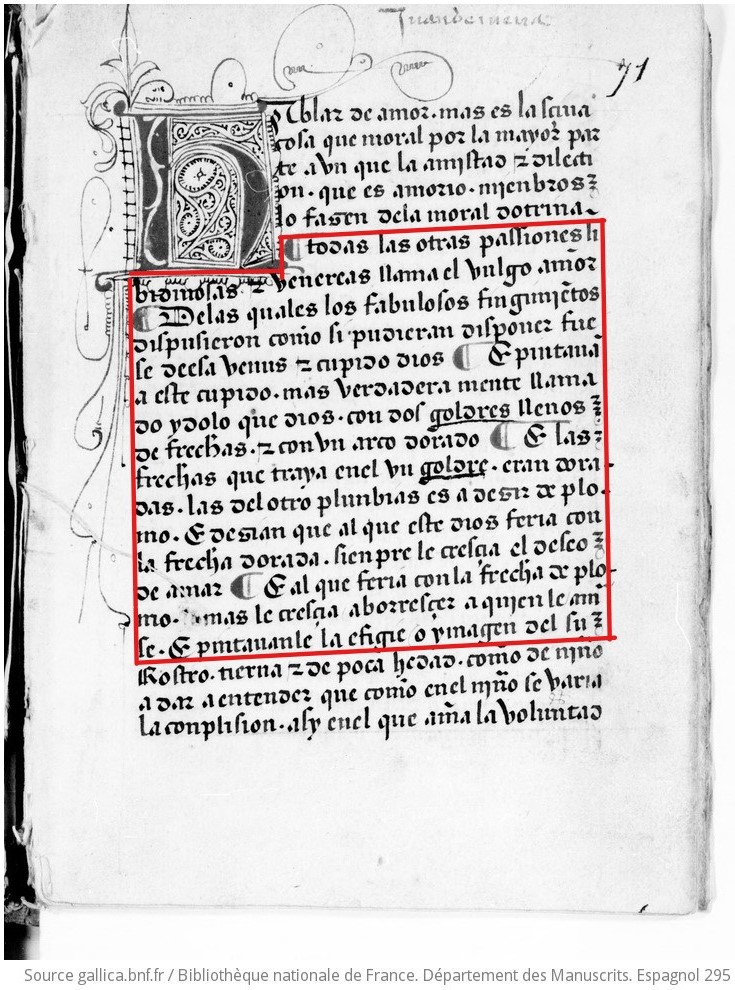 Juan de mena
71
Hablar de amor. mas es lasciua
cosa que moral por la mayor par
te avn que la amistad ⁊ dilecti
on. que es amorio. mienbros ⁊
lo fasen dela moral dotrina.
¶ todas las otras passiones li
bidinosas. ⁊ venereas llama el vulgo amor
¶ Delas quales los fabulosos fingimiẽtos
dispusieron com̃o si pudieran disponer fue
se deesa venus ⁊ cupido dios ¶ E pintauã
a este cupido. mas verdadera mente llama
do ydolo que dios. con dos goldres llenos ⁊
de frechas. ⁊ con vn arco dorado ¶ E las ⁊
frechas que traya enel vn goldre. eran dora
das. las del otro plunbias es a desir de plo
mo. E desian que al que este dios feria con
la frecha dorada. sienpre le crescia el deseo ⁊
de amar ¶ E al que feria con la frecha de plo
mo. mas le crescia aborrescer a quien le am̃
se. E pintauanle la efigie o ymagen del su ⁊
Rostro. tierna ⁊ de poca hedad. com̃o de nin̄o
a dar a entender que com̃o enel nin̄o se varia
la conplision. asy enel que am̃a la voluntad
Source gallica.bnf.fr / Bibliothèque nationale de France. Département des Manuscrits. Espagnol 295